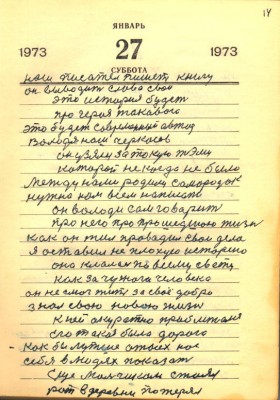 14
ЯНВАРЬ
1973 27 1973
СУББОТА
наш писател пишет книгу
он выводит слова свои
это история будет
про героя такавого
это будет современый автор
Володя наш черкасов
он узяли за токую тэму
которой не когда не было
Между нами родим самородок
нужно нам всем написать
он Володи сам говарит
про него про прошедшою жизн
как он жил провадил свои дела
я оставил не плохую историю
она по всему свету
как за чужога человека
он не смог жить за своё добро
знал свою новою жизн
к ней окуратно
его такая была дорога
как бы лутше
себя в людях показат
Еще
в деревни потерял